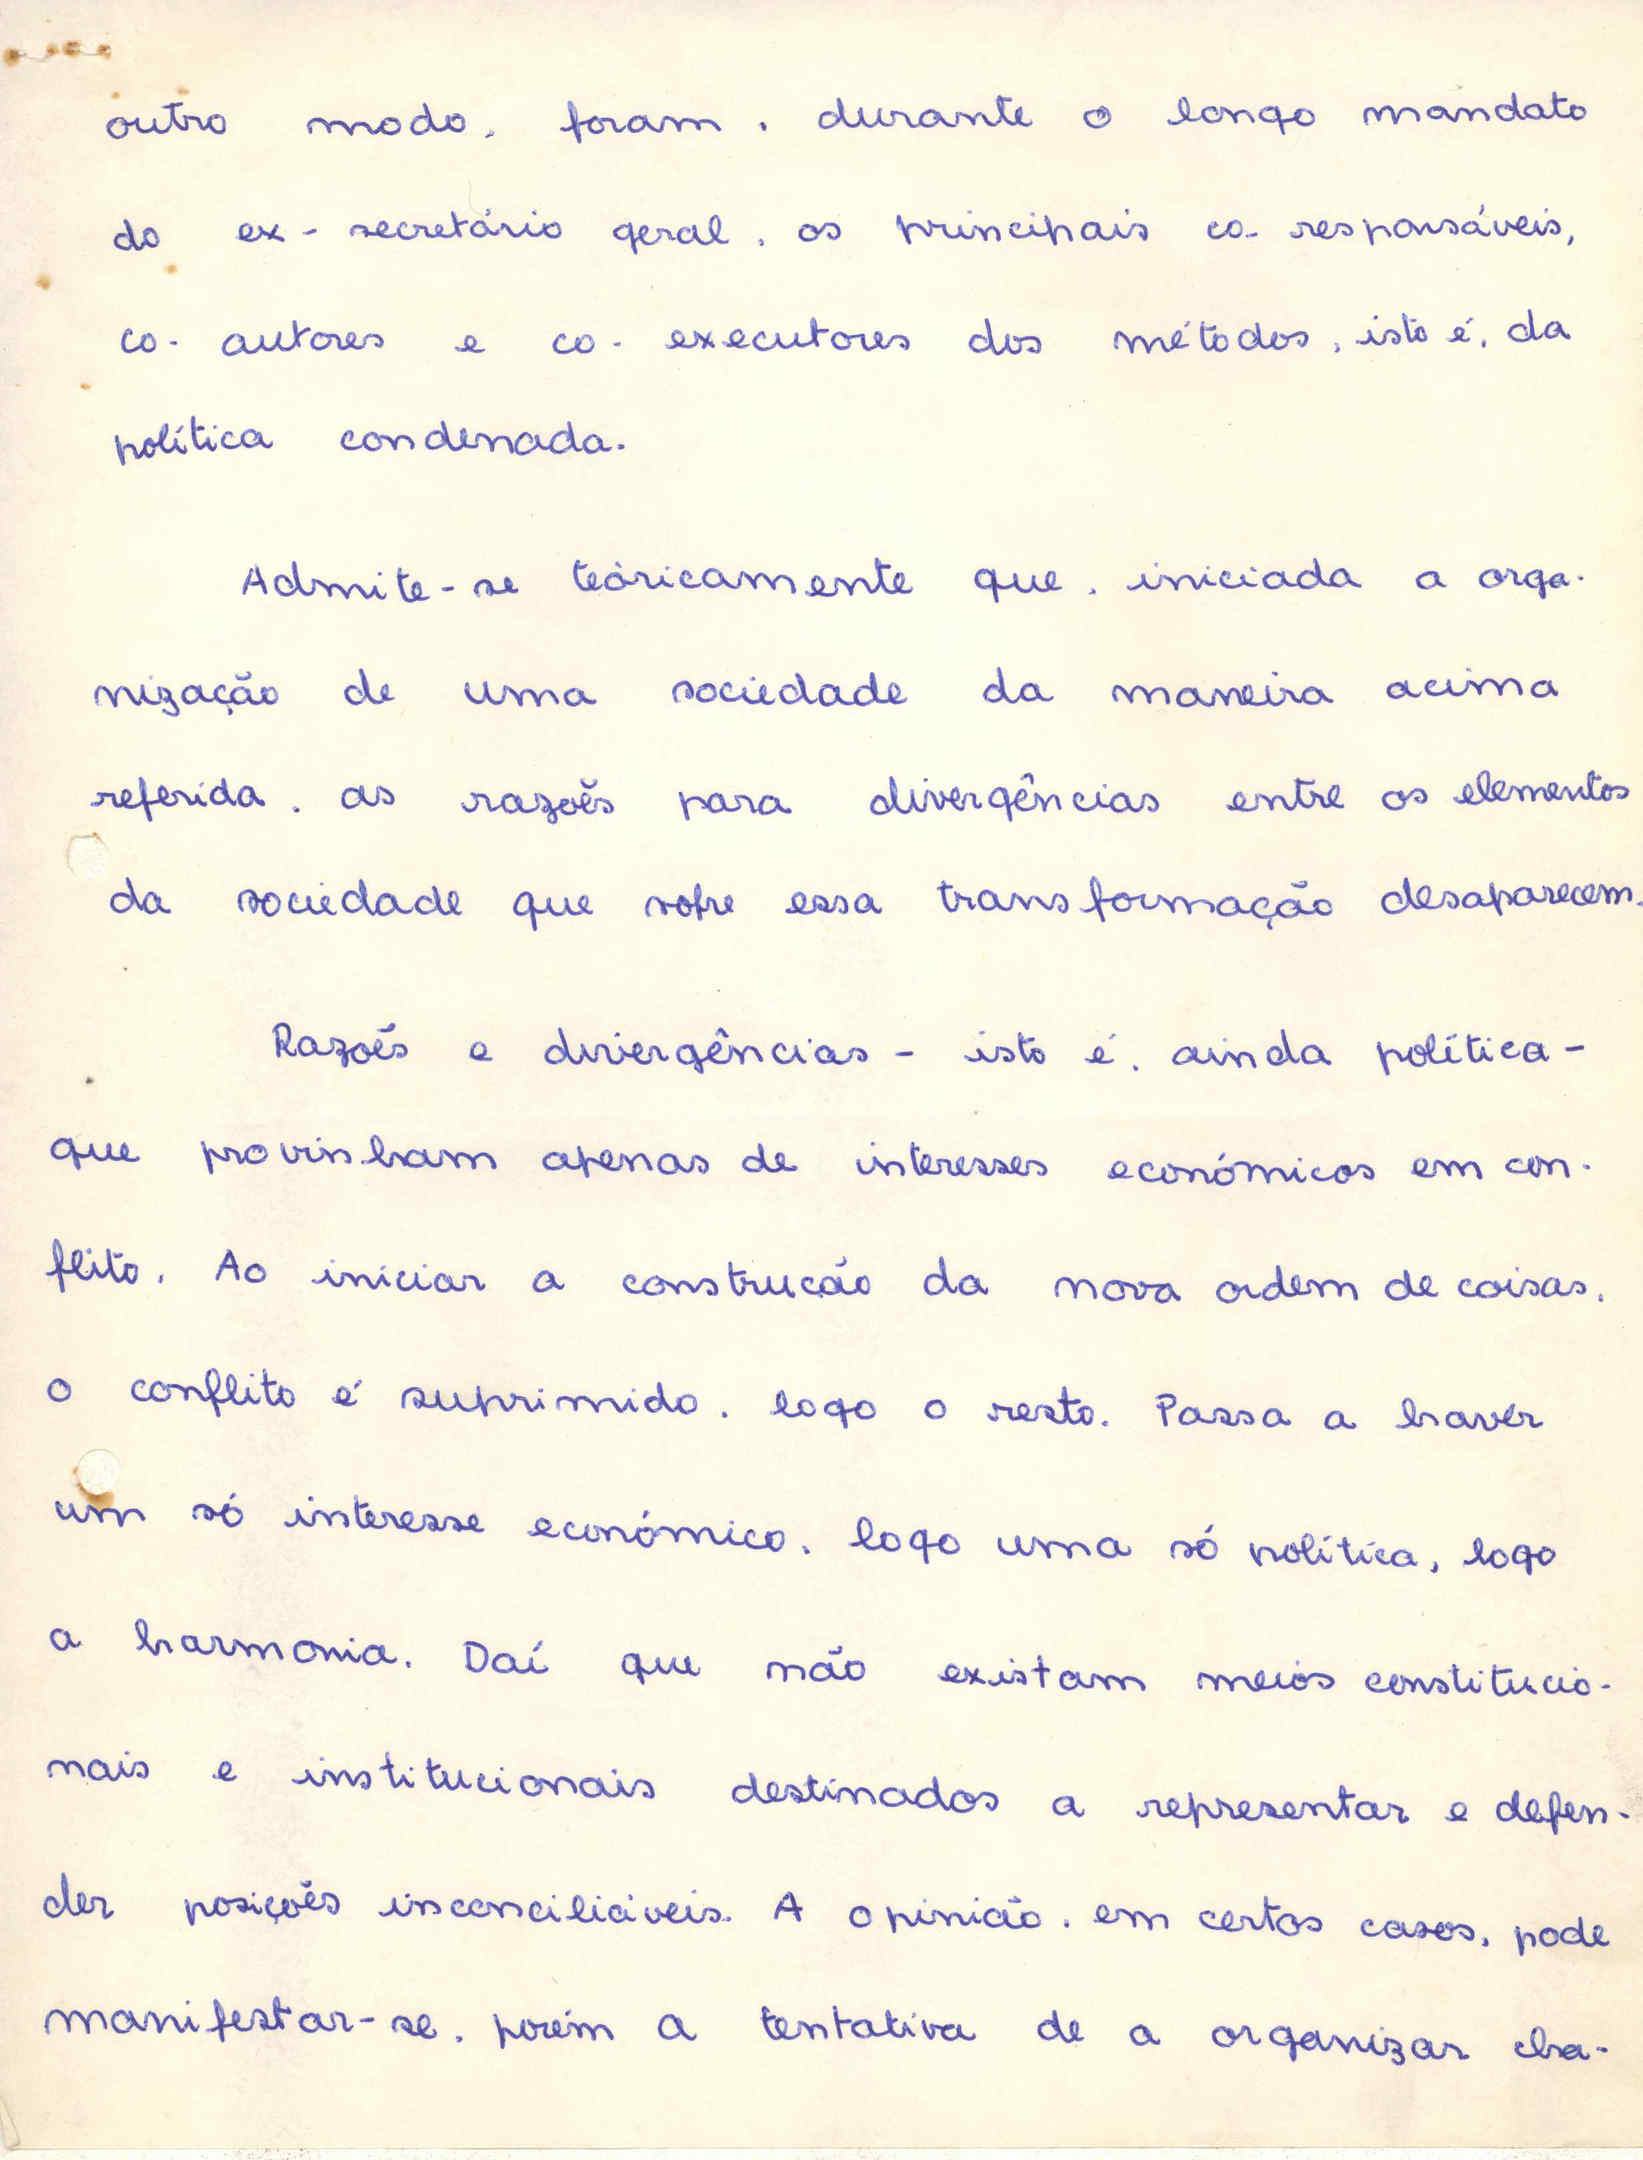 outro modo, foram, durante o longo mandato
do ex-secretário geral, os principais co-responsáveis,
co-autores e co-executores dos métodos, isto é, da
política condenada.
Admite-se teòricamente que, iniciada a orga-
nização de uma sociedade da maneira acima
referida, as razões para divergências entre os elementos
da sociedade que sofre essa transformação desaparecem.
Razões e divergências - isto é, ainda política -
que provinham apenas de interesses económicos em con-
flito. Ao iniciar a construcão da nova ordem de coisas,
o conflito é suprimido, logo o resto. Passa a haver
um só interesse económico, logo uma só política, logo
a harmonia. Daí que não existam meios constitucio-
nais e institucionais destinados a representar e defen-
der posições inconciliáveis. A opinião, em certos casos, pode
manifestar-se, porém a tentativa de a organizar cha-